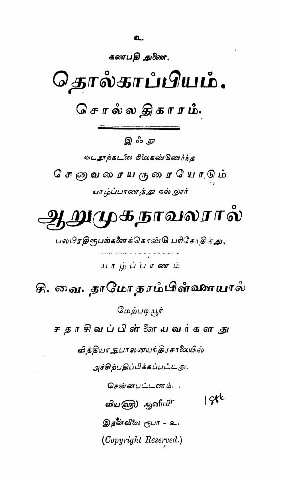 உ
கணபதி துணை.
தொல்காப்பியம்.
சொல்லதிகாரம்.
இஃது
வடநூற்கடலை நிலைகண்டுணர்ந்த
சேனாவரையருரையோடும்
யாழ்ப்பாணத்து நல்லூர்
ஆறுமுகநாவலரால்
பலபிரதிரூபங்களைக்கொண்டு பரிசோதித்து,
யாழ்ப்பாணம்
சி. வை. தாமோதரம்பிள்ளையால்
மேற்படியூர்
சதாசிவப்பிள்ளையவர்களது
வித்தியாநுபாலனயந்திரசாலையில்
அச்சிற்பதிப்பிக்கப்பட்டது.
சென்னபட்டணம்.
ஆனி
இதன்விலை ரூபா - உ.
(Copyright Reserved.)